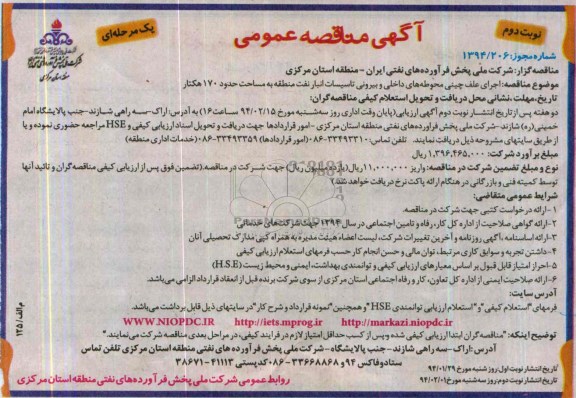 نوبت دوم
آگهی مناقصه عمومی
یک مرحله‌ای
شماره مجوز: ۱۳۹۴/۲۰۶
شرکت ملی پخش فرآورده‌های نفتی ایران
منطقه استان مرکزی
مناقصه گزار: شرکت ملی پخش فرآورده‌های نفتی ایران - منطقه استان مرکزی
موضوع مناقصه: اجرای علف چینی محوطه‌های داخلی و بیرونی تاسیسات انبار نفت منطقه به مساحت حدود ۱۷۰ هکتار
تاریخ، مهلت، نشانی محل دریافت و تحویل استعلام کیفی مناقصه‌گران:
دو هفته پس از تاریخ انتشار نوبت دوم آگهی ارزیابی (پایان وقت اداری روز سه‌شنبه مورخ ۹۴/۰۲/۱۵ ساعت ۱۶) به آدرس: اراک-سه راهی شازند-جنب پالایشگاه امام
خمینی(ره) شازند -شرکت ملی پخش فراورده‌های نفتی منطقه استان مرکزی - امور قراردادها جهت دریافت و تحویل اسناد ارزیابی کیفی و HSE مراجعه حضوری نموده و یا
از طریق سایتهای مشروحه ذیل دریافت نمایند. تلفن تماس: ۳۳۴۹۳۳۱۰-۰۸۶ (امور قراردادها) ۳۳۴۹۳۳۵۹-۰۸۶ (خدمات اداری منطقه)
مبلغ برآورد شرکت: ۱,۳۹۶,۴۶۵,۰۰۰ ریال
نوع و مبلغ تضمین شرکت در مناقصه: واریز ۱۱,۰۰۰,۰۰۰ ریال (یازده میلیون ریال) جهت شرکت در مناقصه. (تضمین فوق پس از ارزیابی کیفی مناقصه‌گران و تائید آنها
توسط کمیته فنی و بازرگانی در هنگام ارائه پاکت نرخ دریافت خواهد شد.)
شرایط عمومی متقاضی:
۱-ارائه درخواست کتبی جهت شرکت در مناقصه.
۲-ارائه گواهی صلاحیت از اداره کل کار، رفاه و تامین اجتماعی در سال ۱۳۹۴ جهت شرکت‌های خدماتی
۳-ارائه اساسنامه، آگهی روزنامه و آخرین تغییرات شرکت، لیست اعضاء هیئت مدیره به همراه کپی مدارک تحصیلی آنان
۴- داشتن تجربه و سوابق کاری مرتبط، توان مالی و حسن انجام کار حسب فرمهای استعلام ارزیابی کیفی
۵-احراز امتیاز قابل قبول بر اساس معیارهای ارزیابی کیفی و توانمندی بهداشت، ایمنی و محیط زیست (H.S.E)
۶- ارائه صلاحیت ایمنی از اداره کل تعاون، کار و رفاه اجتماعی استان مرکزی از سوی شرکت برنده قبل از انعقاد قرارداد الزامی می‌باشد.
آدرس سایت:
فرمهای "استعلام کیفی" و "استعلام ارزیابی توانمندی HSE" و همچنین "نمونه قرارداد و شرح کار" در سایتهای ذیل قابل برداشت می‌باشد.
WWW.NIOPDC.IR http://iets.mprog.ir http://markazi.niopdc.ir
توضیح اینکه: "مناقصه گران ابتدا ارزیابی کیفی شده و پس از کسب حداقل امتیاز لازم در فرآیند کیفی، در مراحل بعدی مناقصه شرکت می‌نمایند."
آدرس: اراک-سه راهی شازند- جنب پالایشگاه-شرکت ملی پخش فرآورده های نفتی منطقه استان مرکزی تلفن تماس
ستاد و فاکس ۹۴ و ۳۳۶۶۸۸۶۸-۰۸۶ کدپستی ۴۱۱۱۳-۳۸۶۷۱
تاریخ انتشار نوبت اول روز شنبه مورخ ۹۴/۰۱/۲۹
تاریخ انتشار نوبت دوم روز سه شنبه مورخ ۹۴/۰۲/۰۱
روابط عمومی شرکت ملی پخش فرآورده‌های نفتی منطقه استان مرکزی
م الف/۱۲۵